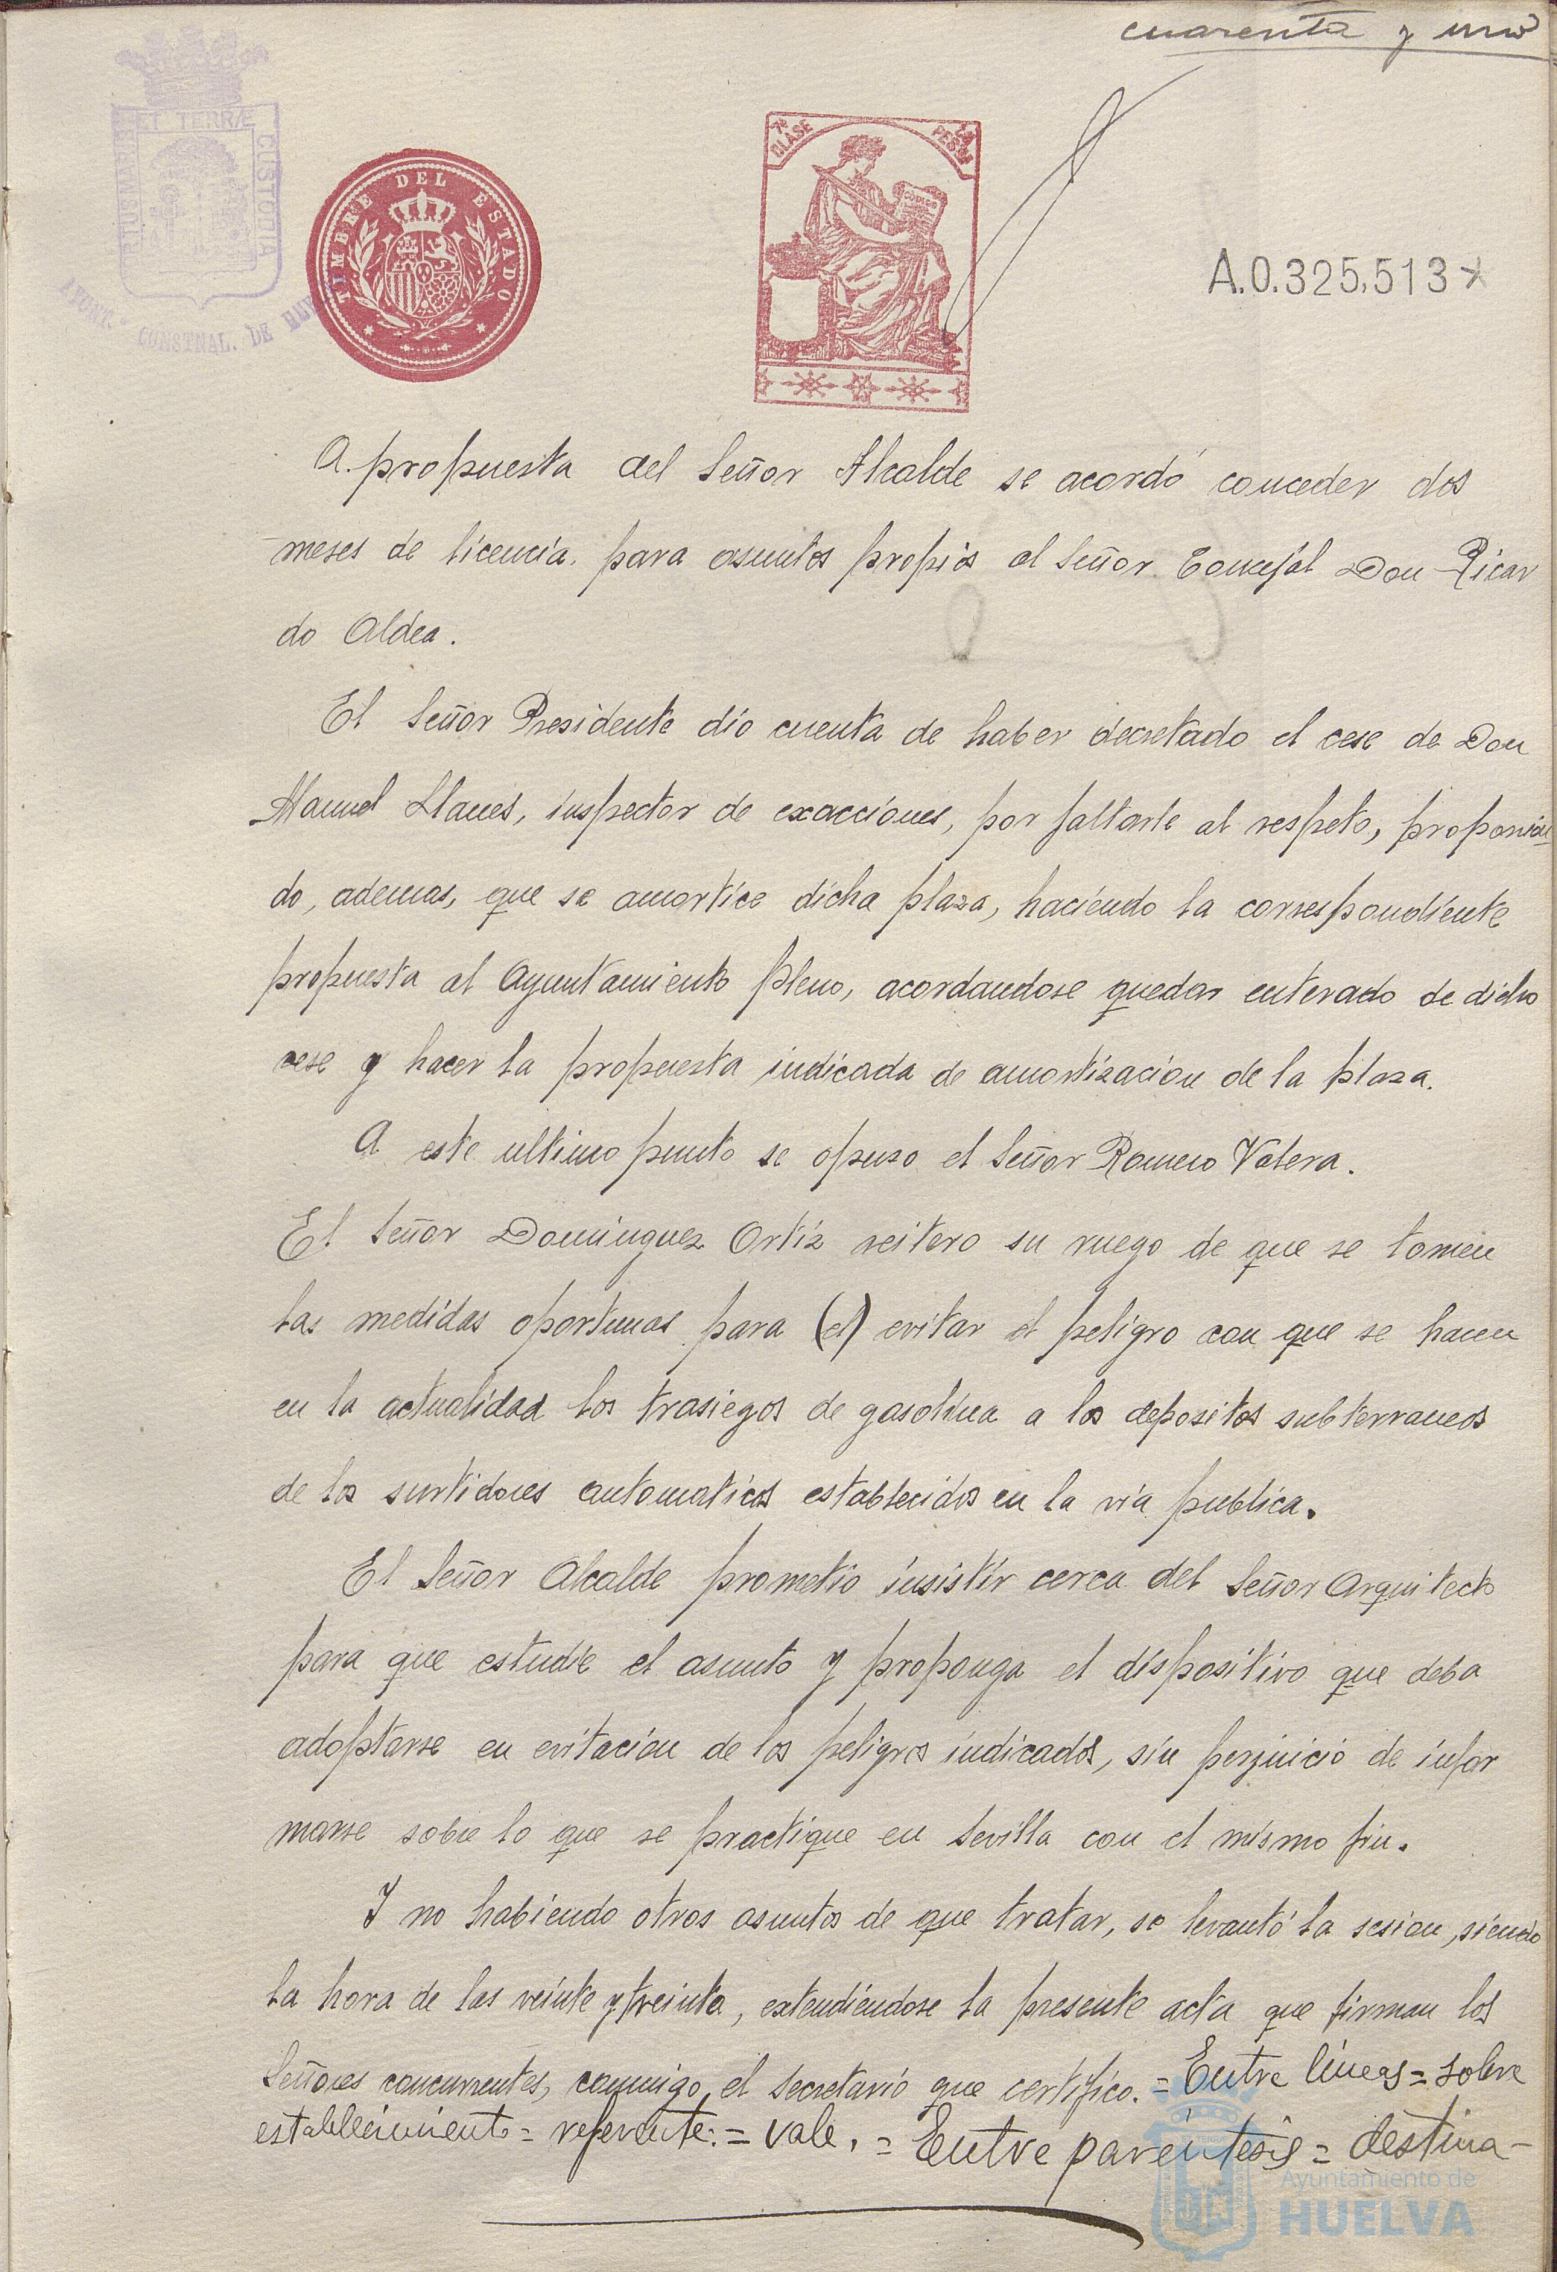 cuarenta y uno
ET TERRÆ
CUSTODIA
CONSTNAL. DE
TIMBRE DEL ESTADO
7ª CLASE
A.0.325.513*
A propuesta del Señor Alcalde se acordó conceder dos
meses de licencia para asuntos propios al Señor Concejal Don Ricar
do Aldea.
El Señor Presidente dio cuenta de haber decretado el cese de Don
Manuel Llanes, inspector de exacciones, por faltarle al respeto, proponien
do, ademas, que se amortice dicha plaza, haciendo la correspondiente
propuesta al Ayuntamiento pleno, acordandose quedar enterado de dicho
cese y hacer la propuesta indicada de amortizacion de la plaza.
A este ultimo punto se opuso el Señor Romero Valera.
El Señor Dominguez Ortiz reitero su ruego de que se tomen
las medidas oportunas para (el) evitar el peligro con que se hacen
en la actualidad los trasiegos de gasolina a los depositos subterraneos
de los surtidores automaticos establecidos en la via publica.
El Señor Alcalde prometio insistir cerca del Señor Arquitecto
para que estudie el asunto y proponga el dispositivo que deba
adoptarse en evitacion de los peligros indicados, sin perjuicio de infor
marse sobre lo que se practique en Sevilla con el mismo fin.
Y no habiendo otros asuntos de que tratar, se levantó la sesion, siendo
la hora de las veinte y treinta, extendiendose la presente acta que firman los
Señores concurrentes, conmigo, el Secretario que certifico. = Entre líneas = sobre
establecimiento = referente: = vale. = Entre paréntesis = destina-
Ayuntamiento de
HUELVA